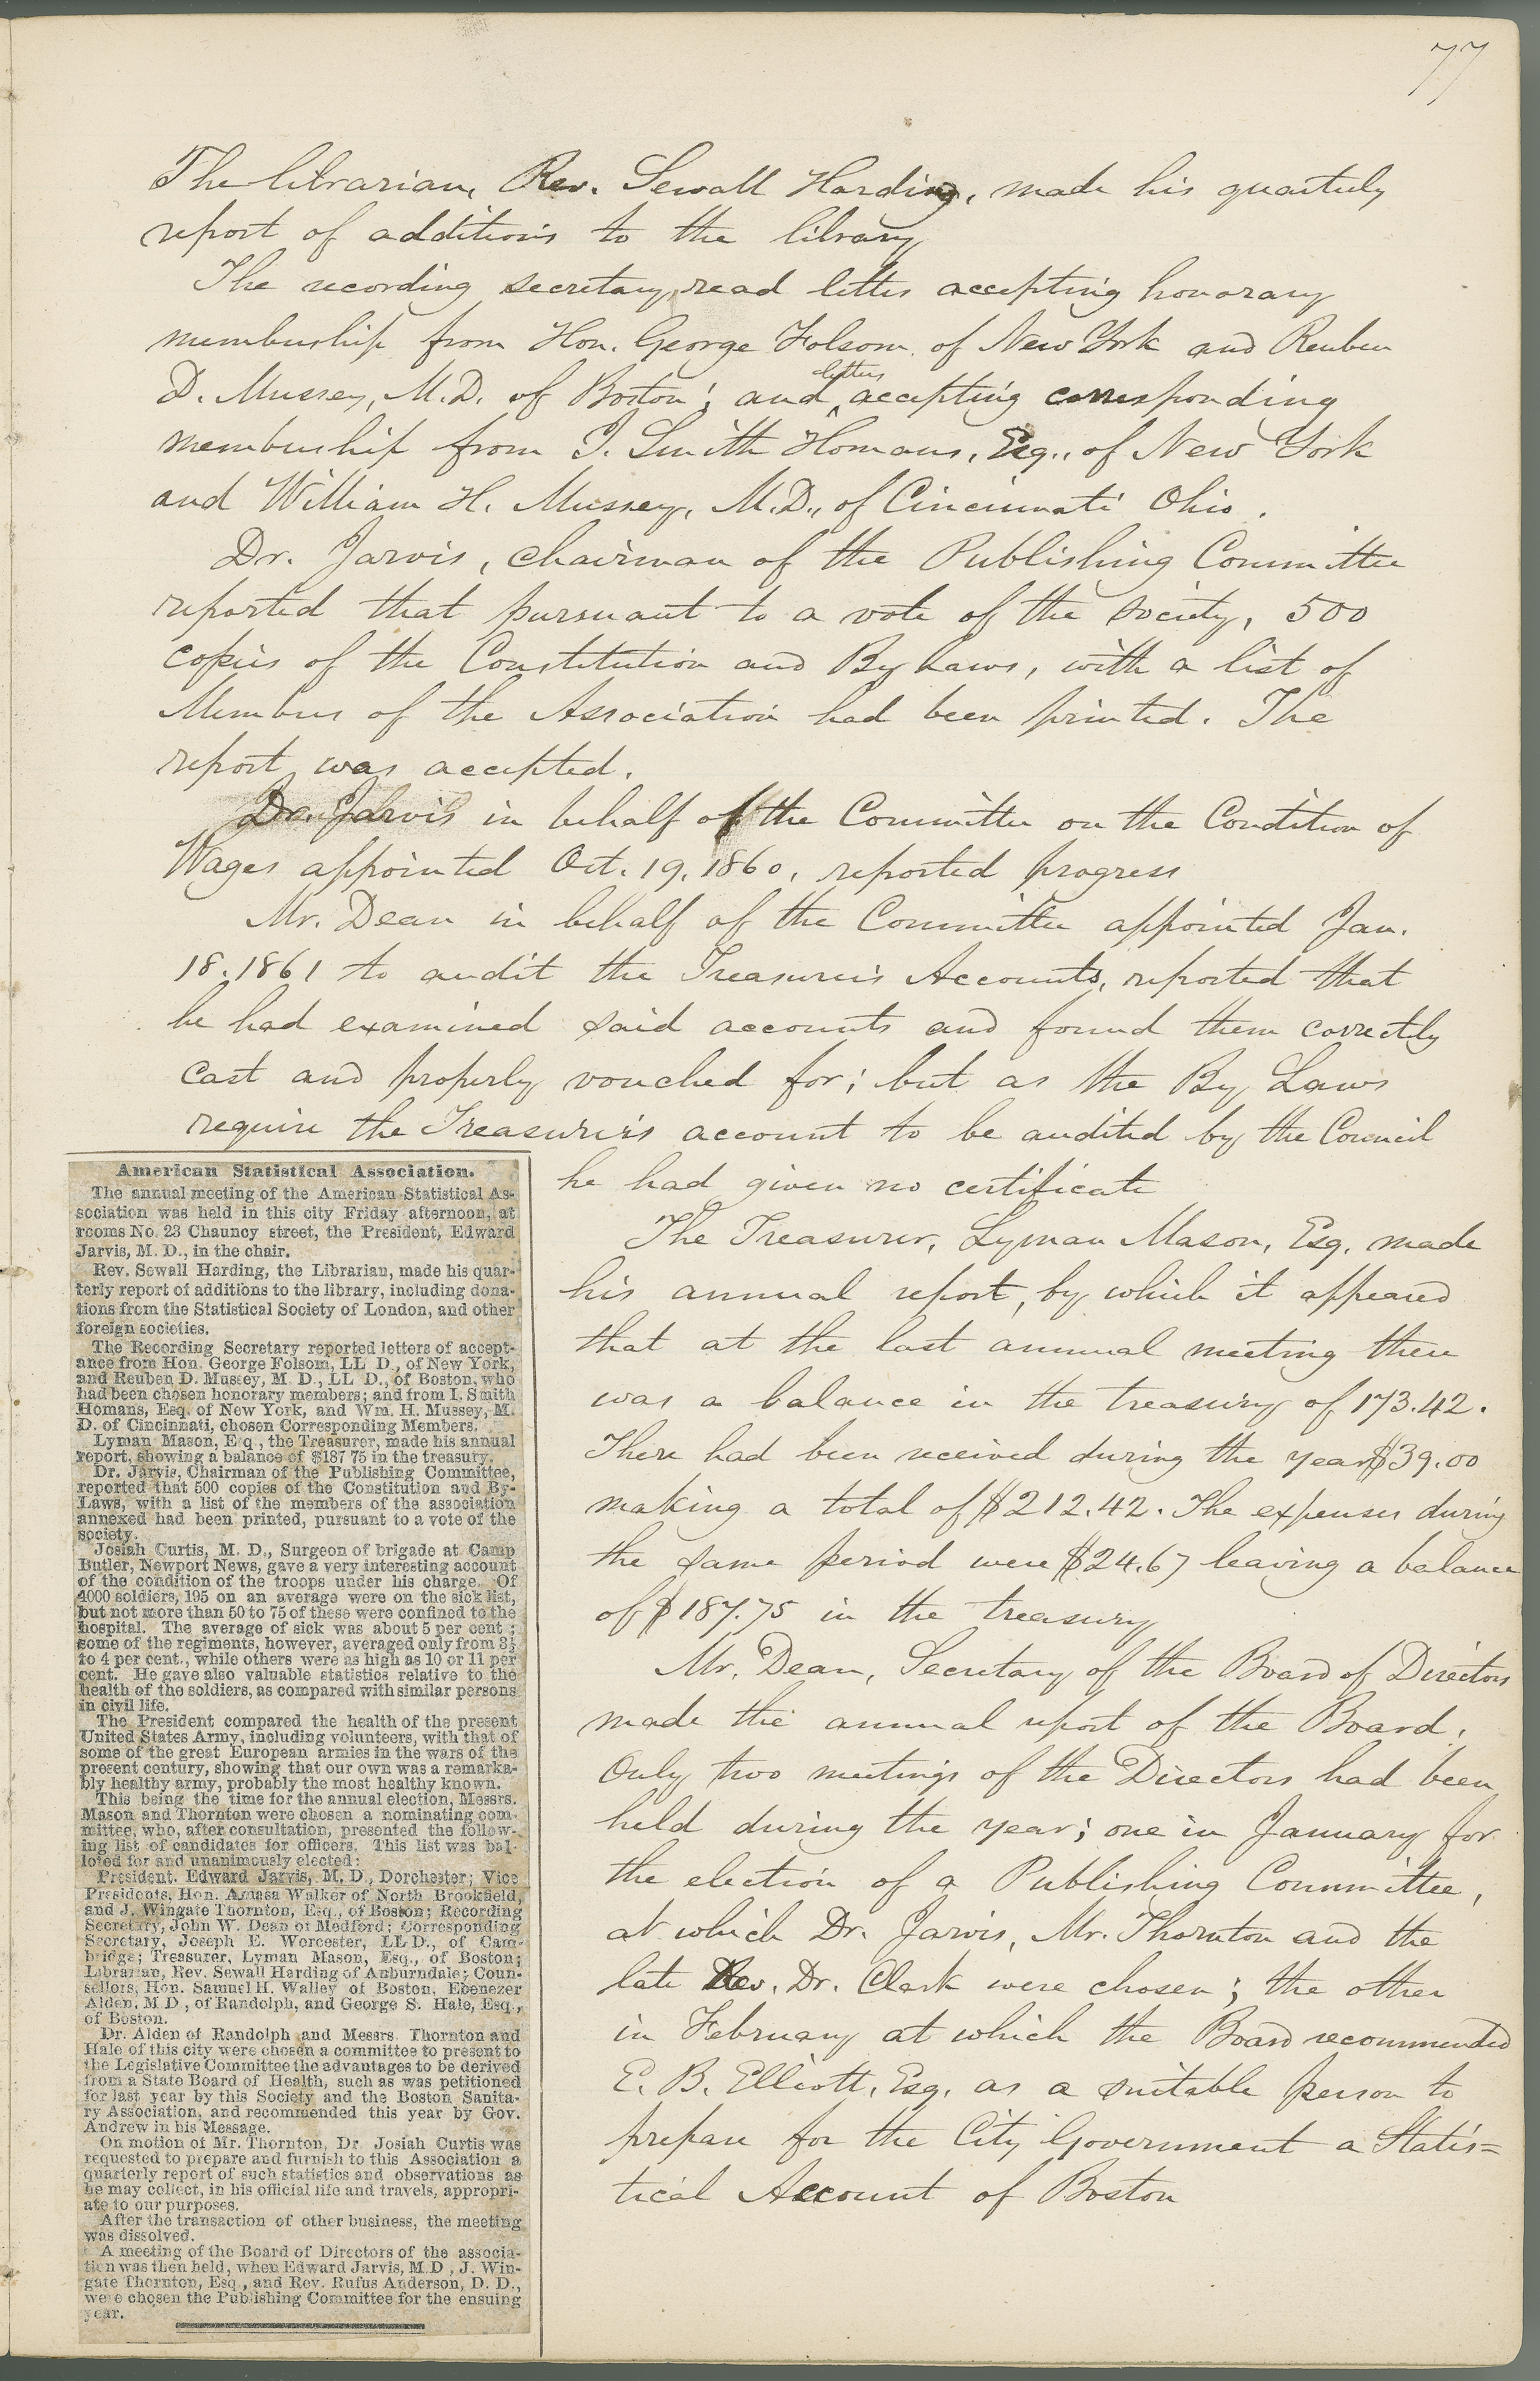 77
The librarian, Rev. Sewall Harding, made his quarterly
report of additions to the library
The recording secretary, read letters accepting honorary
membership from Hon. George Folsom of New York and Reuben
letters
D. Mussey, M.D. of Boston; and accepting corresponding
membership from I. Smith Homans, Esq., of New York
and William H. Mussey, M.D., of Cincinnati Ohio.
Dr. Jarvis, chairman of the Publishing Committee
reported that pursuant to a vote of the society, 500
copies of the Constitution and By Laws, with a list of
Members of the Association had been printed. The
report was accepted.
Dr. Jarvis in behalf of the Committee on the Condition of
Wages appointed Oct. 19, 1860, reported progress
Mr. Dean in behalf of the Committee appointed Jan.
18. 1861 to audit the Treasurer's Accounts, reported that
he had examined said accounts and found them correctly
cast and properly vouched for; but as the By Laws
require the Treasurer's account to be audited by the Council
he had given no certificate
The Treasurer, Lyman Mason, Esq. made
his annual report, by which it appeared
that at the last annual meeting there
was a balance in the treasury of 173.42.
There had been received during the year $39.00
making a total of $212.42. The expenses during
the same period were $24.67 leaving a balance
of $187.75 in the treasury
Mr. Dean, Secretary of the Board of Directors
made the annual report of the Board.
Only two meetings of the Directors had been
held during the year; one in January for
the election of a Publishing Committee,
at which Dr. Jarvis, Mr. Thornton and the
late Rev. Dr. Clark were chosen; the other
in February at which the Board recommended
E. B. Elliott, Esq. as a suitable person to
prepare for the City Government a Statis=
tical Account of Boston
American Statistical Association.
The annual meeting of the American Statistical As-
sociation was held in this city Friday afternoon, at
rooms No. 23 Chauncy street, the President, Edward
Jarvis, M. D., in the chair.
Rev. Sewall Harding, the Librarian, made his quar-
terly report of additions to the library, including dona-
tions from the Statistical Society of London, and other
foreign societies.
The Recording Secretary reported letters of accept-
ance from Hon. George Folsom, LL D., of New York,
and Reuben D. Mussey, M. D., LL D., of Boston, who
had been chosen honorary members; and from I. Smith
Homans, Esq. of New York, and Wm. H. Mussey, M.
D. of Cincinnati, chosen Corresponding Members.
Lyman Mason, E q , the Treasurer, made his annual
report, showing a balance of $187 75 in the treasury.
Dr. Jarvis, Chairman of the Publishing Committee,
reported that 500 copies of the Constitution and By-
Laws, with a list of the members of the association
annexed had been printed, pursuant to a vote of the
society.
Josiah Curtis, M. D., Surgeon of brigade at Camp
Butler, Newport News, gave a very interesting account
of the condition of the troops under his charge. Of
4000 soldiers, 195 on an average were on the sick list,
but not more than 50 to 75 of these were confined to the
hospital. The average of sick was about 5 per cent ;
some of the regiments, however, averaged only from 3½
to 4 per cent., while others were as high as 10 or 11 per
cent. He gave also valuable statistics relative to the
health of the soldiers, as compared with similar persons
in civil life.
The President compared the health of the present
United States Army, including volunteers, with that of
some of the great European armies in the wars of the
present century, showing that our own was a remarka-
bly healthy army, probably the most healthy known.
This being the time for the annual election, Messrs.
Mason and Thornton were chosen a nominating com-
mittee, who, after consultation, presented the follow-
ing list of candidates for officers. This list was bal-
loted for and unanimously elected:
President. Edward Jarvis, M. D , Dorchester; Vice
Presidents, Hon. Amasa Walker of North Brookfield,
and J. Wingate Thornton, Esq., of Boston; Recording
Secretary, John W. Dean of Medford; Corresponding
Secretary, Joseph E. Worcester, LL D., of Cam-
bridge; Treasurer, Lyman Mason, Esq., of Boston;
Librarian, Rev. Sewall Harding of Auburndale; Coun-
sellors, Hon. Samuel H. Walley of Boston, Ebenezer
Alden, M D , of Randolph, and George S. Hale, Esq.,
of Boston.
Dr. Alden of Randolph and Messrs. Thornton and
Hale of this city were chosen a committee to present to
the Legislative Committee the advantages to be derived
from a State Board of Health, such as was petitioned
for last year by this Society and the Boston Sanita-
ry Association, and recommended this year by Gov.
Andrew in his Message.
On motion of Mr. Thornton, Dr. Josiah Curtis was
requested to prepare and furnish to this Association a
quarterly report of such statistics and observations as
he may collect, in his official life and travels, appropri-
ate to our purposes.
After the transaction of other business, the meeting
was dissolved.
A meeting of the Board of Directors of the associa-
tion was then held, when Edward Jarvis, M.D , J. Win-
gate Thornton, Esq , and Rev. Rufus Anderson, D. D.,
were chosen the Publishing Committee for the ensuing
year.